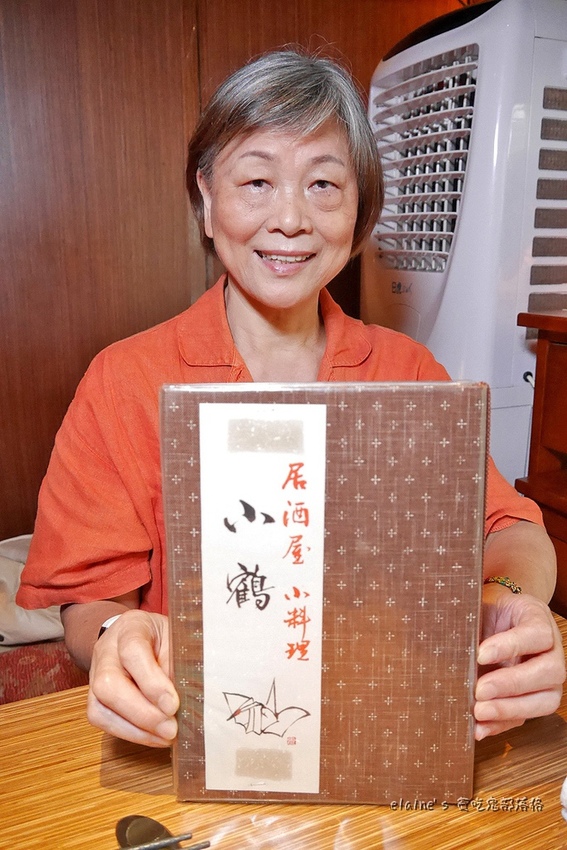 居酒屋 小料理
小鶴
elaine's 愛吃鬼部落格